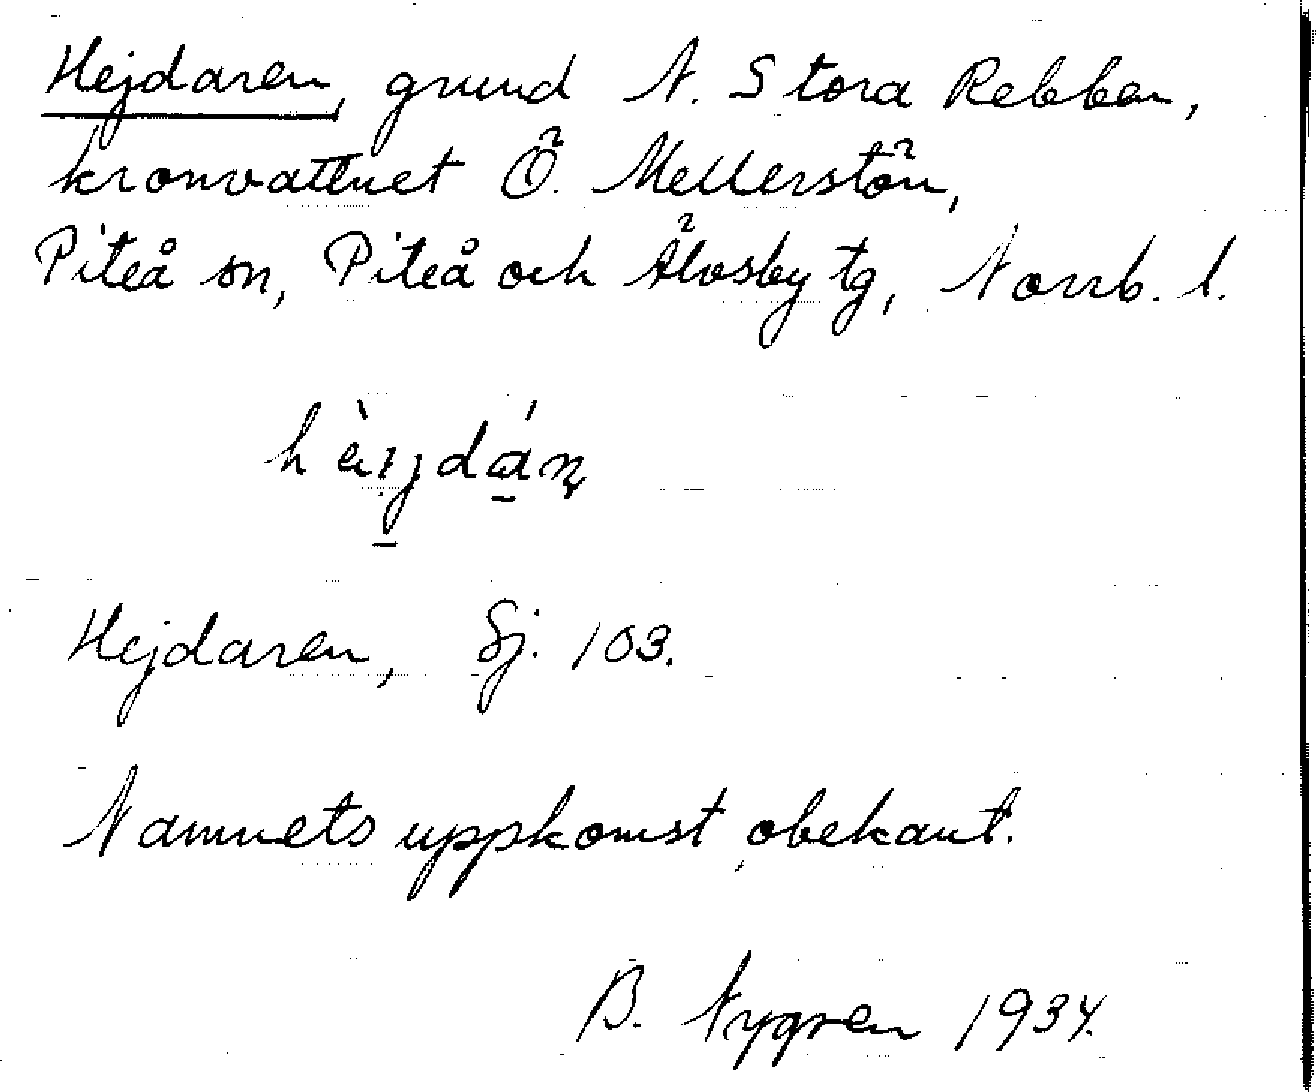 Hejdaren, grund N. Stora Rebben,
kronvattnet Ö. Mellerstön,
Piteå sn, Piteå och Älvsby tg, Norrb. l.
Hejdaren, Sj. 103.
Namnets uppkomst obekant.
B. Nygren 1934.